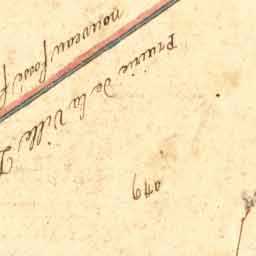 nouveau fossé f
Prairie de la Ville D